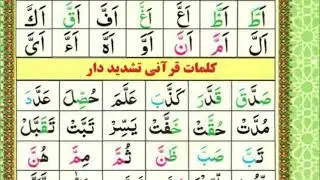 اَطَّ اَظَّ اَعَّ اَغَّ اَفَّ اَقَّ اَكَّ
اَلَّ اَمَّ اَنَّ اَوَّ اَهَّ اَءَّ اَیَّ
کلمات قرآنی تشدید دار
صَدَّقَ قَدَّرَ كَذَّبَ عَلَّمَ حُصِّلَ عَدَّدَ
مُدَّتْ حُقَّتْ خَفَّتْ يَسِّرْ تَبَّتْ تَقَبَّلْ
تَبَّ صَبَّ ظَنَّ ثُمَّ مِمَّ هُنَّ